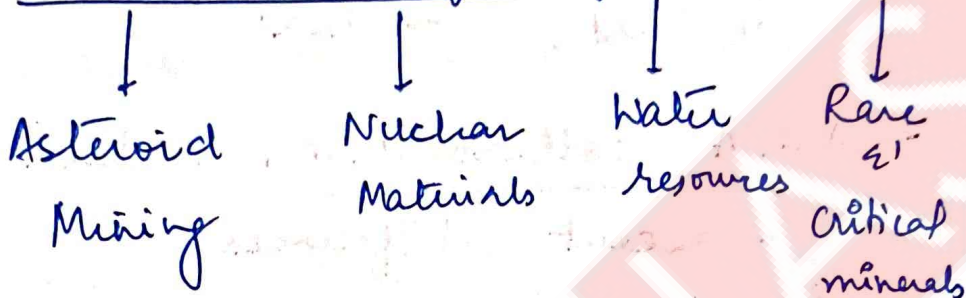 Asteroid
Mining
Nuclear
Materials
Water
resources
Rare
&
Critical
minerals